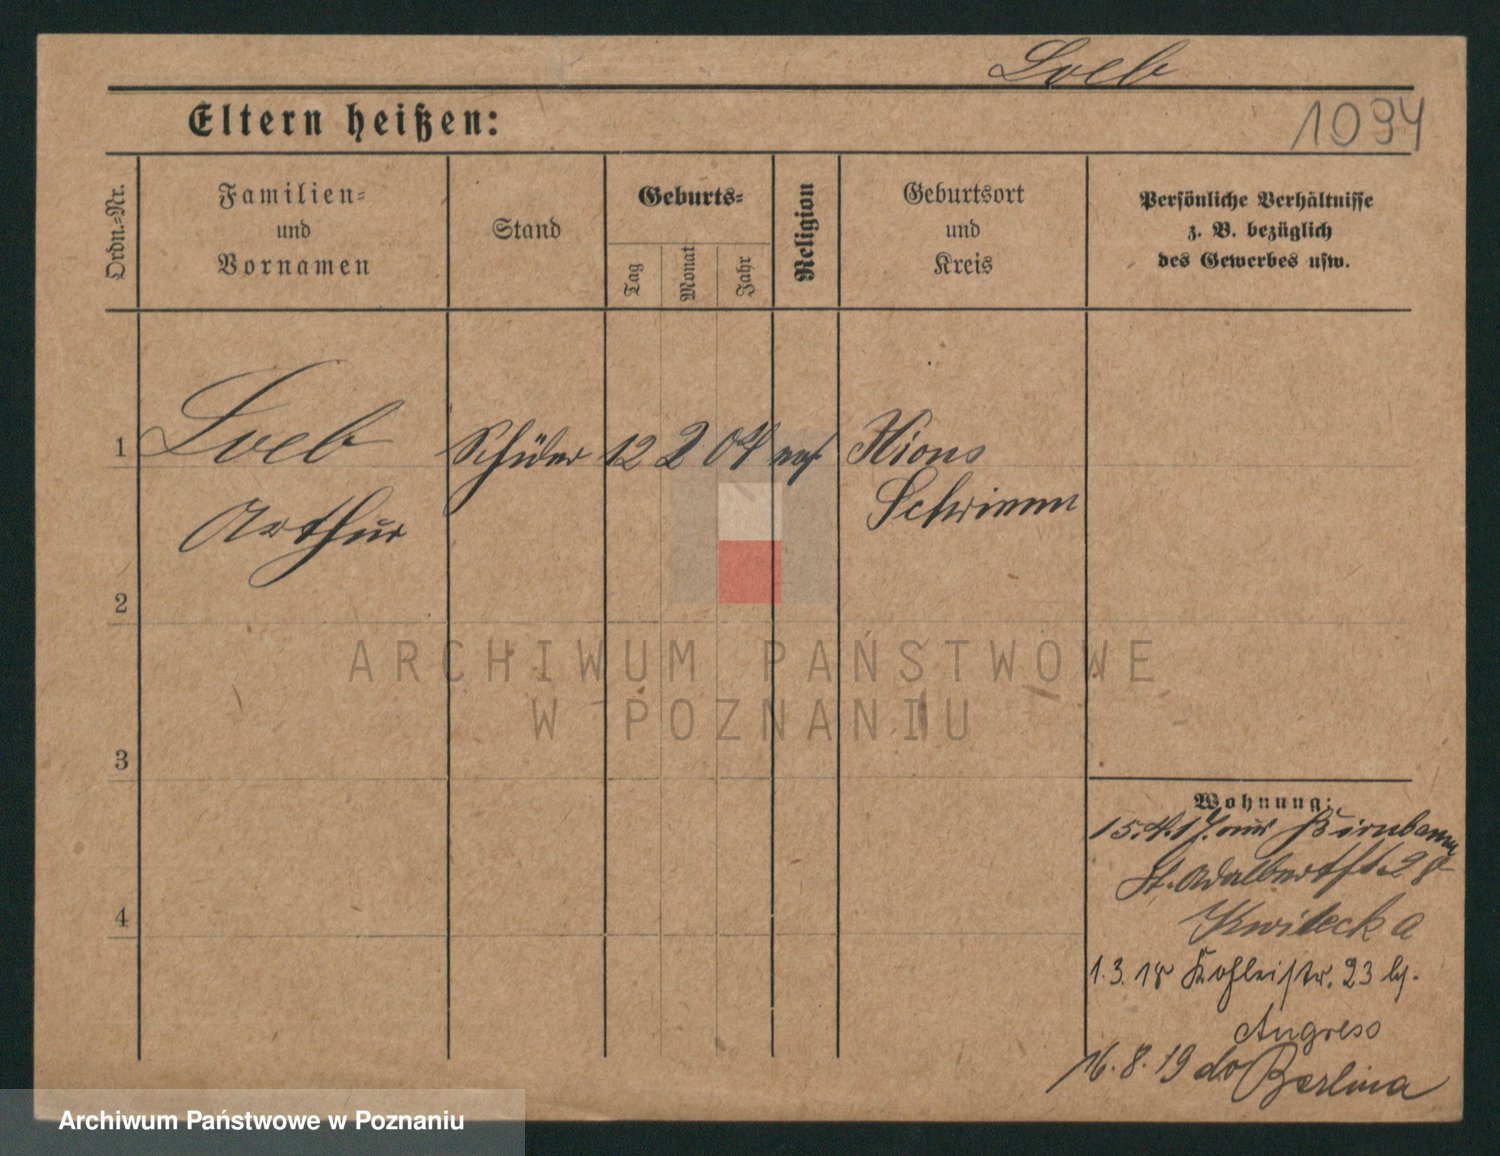 Loeb
Eltern heißen:
1094
Ordn.-Nr.
Familien-
und
Vornamen
Stand
Geburts-
Tag
Monat
Jahr
Religion
Geburtsort
und
Kreis
Persönliche Verhältnisse
z. B. bezüglich
des Gewerbes usw.
1
Loeb
Schüler
12
2
04
Xions
Arthur
Schrimm
2
ARCHIWUM PAŃSTWOWE
W POZNANIU
3
Wohnung:
15.4.17. aus Birnbaum
St. Adalbertstr. 28
Kwilecka
4
1.3.18 Kohleistr. 23 b/.
Angress
16.8.19 do Berlina
Archiwum Państwowe w Poznaniu